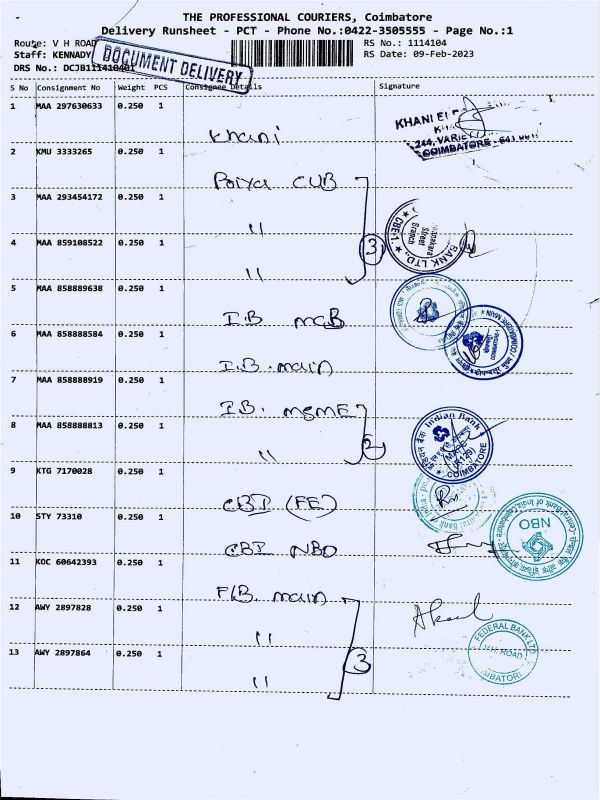 THE PROFESSIONAL COURIERS, Coimbatore
Delivery Runsheet - PCT - Phone No.:0422-3505555 - Page No.:1
Route: V H ROAD
RS No.: 1114104
Staff: KENNADY
RS Date: 09-Feb-2023
DRS No.: DCJB111410401
DOCUMENT DELIVERY
S No Consignment No Weight PCS Consignee Details Signature
1 MAA 297630633 0.250 1 Khani
KHANI
244, VARIE
COIMBATORE - 641 001
2 KMU 3333265 0.250 1 Poiya CUB
3 MAA 293454172 0.250 1 "
4 MAA 859108522 0.250 1 " 3
BANK LTD. Street Branch CBE-1.
5 MAA 858889638 0.250 1 I.B MCB
6 MAA 858888584 0.250 1 I.B. main
7 MAA 858888919 0.250 1 I.B. MSME
8 MAA 858888813 0.250 1 " 2
Indian Bank
COIMBATORE
9 KTG 7170028 0.250 1 CBI (FE)
10 STY 73310 0.250 1 CBI NBO
Central Bank of India
NBO
11 KOC 60642393 0.250 1 FLB. main
12 AWY 2897828 0.250 1 "
13 AWY 2897864 0.250 1 " 3
FEDERAL BANK LTD.
V.H. ROAD
MBATORE